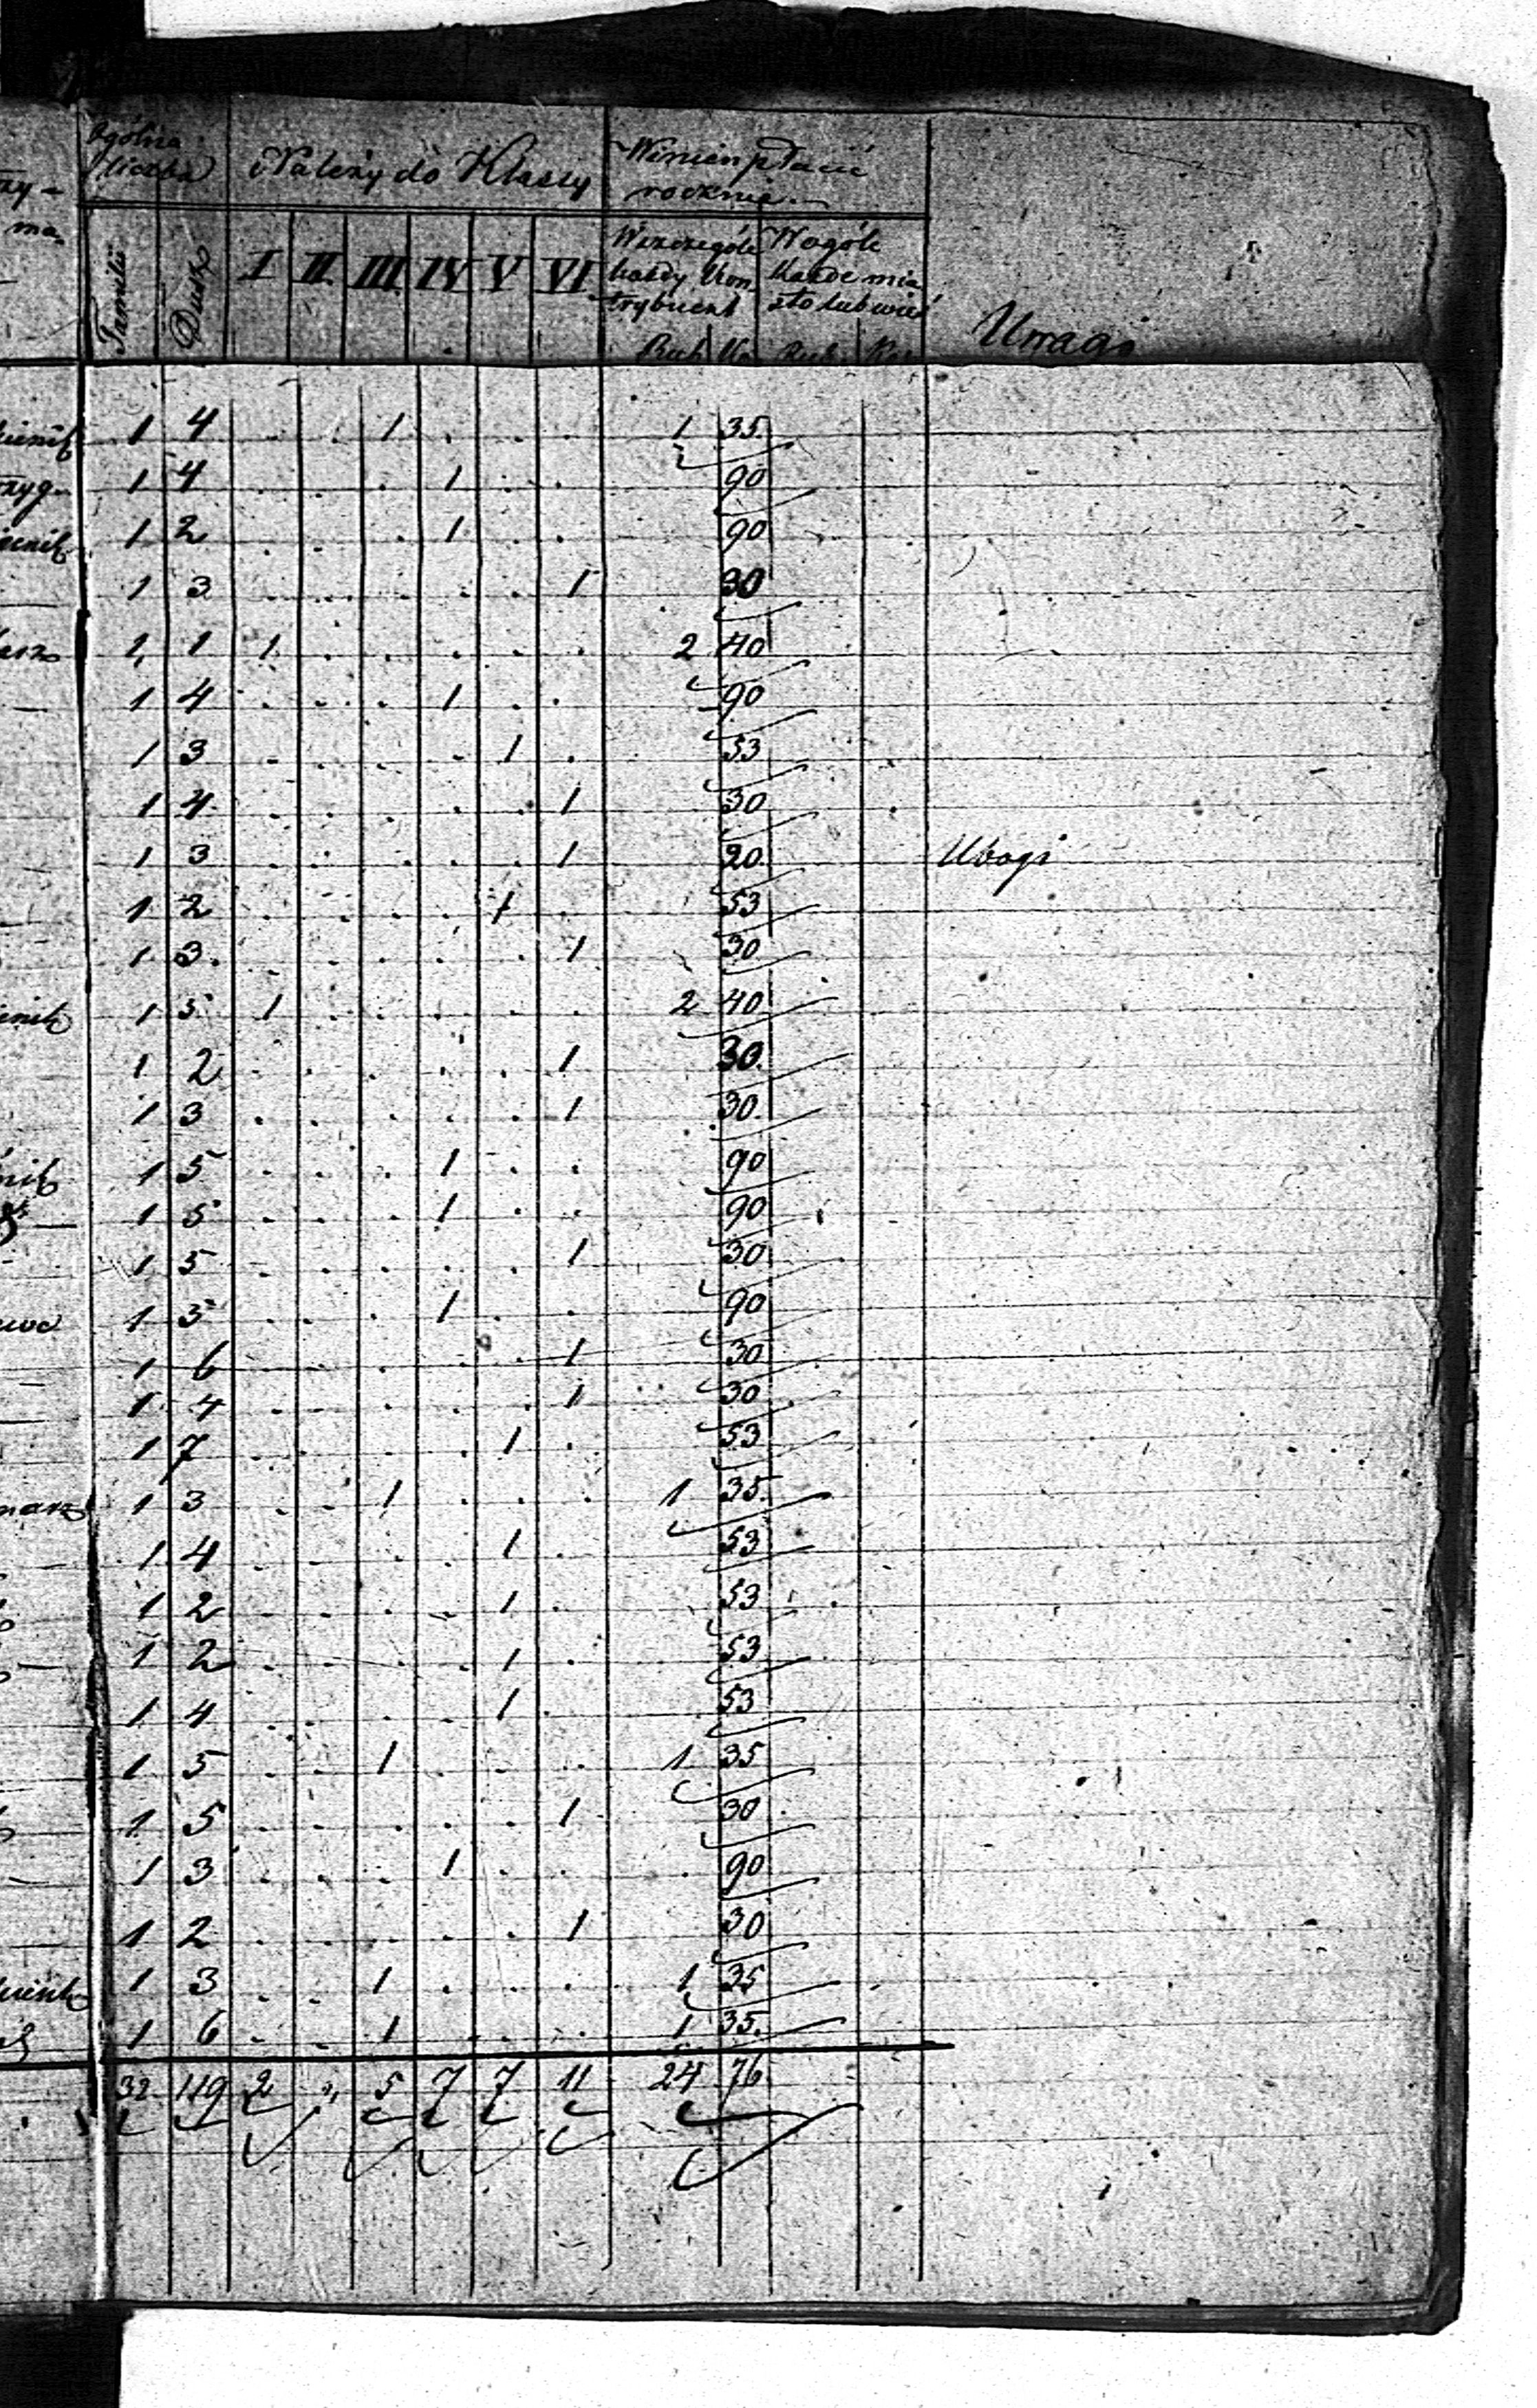 Ogólna liczba
Należy do Klassy
Winien płacić rocznie
Uwagi
Familii
Dusz
I II III IV V VI
Wszczególe każdy Kontrybuent
Wogóle Każde miasto lub wieś
Rub. Ko. Rub. Kop.
1 4 . . 1 . . . 1 35
1 4 . . . 1 . . 90
1 2 . . . 1 . . 90
1 3 . . . . . 1 30
1 1 1 . . . . . 2 40
1 4 . . . 1 . . 90
1 3 . . . . 1 . 53
1 4 . . . . . 1 30
1 3 . . . . . 1 20 Ubogi
1 2 . . . . 1 . 53
1 3 . . . . . 1 30
1 5 1 . . . . . 2 40
1 2 . . . . . 1 30
1 3 . . . . . 1 30
1 5 . . . 1 . . 90
1 5 . . . 1 . . 90
1 5 . . . . . 1 30
1 5 . . . 1 . . 90
1 6 . . . . . 1 30
1 4 . . . . . 1 30
1 7 . . . . 1 . 53
1 3 . . 1 . . . 1 35
1 4 . . . . 1 . 53
1 2 . . . . 1 . 53
1 2 . . . . 1 . 53
1 4 . . . . 1 . 53
1 5 . . 1 . . . 1 35
1 5 . . . . . 1 30
1 3 . . . 1 . . 90
1 2 . . . . . 1 30
1 3 . . 1 . . . 1 35
1 6 . . 1 . . . 1 35
32 119 2 " 5 7 7 11 24 76